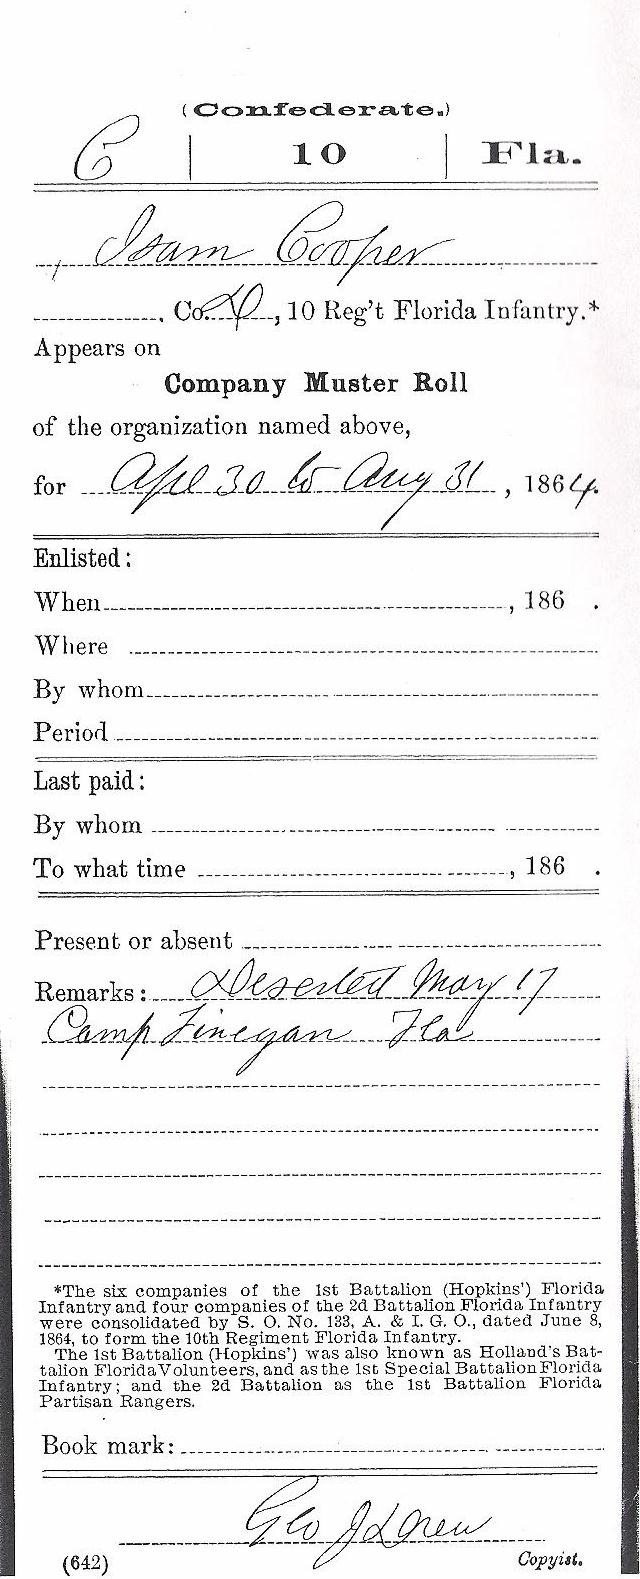 (Confederate.)
C | 10 | Fla.
, Isam Cooper
, Co. D, 10 Reg't Florida Infantry.*
Appears on
Company Muster Roll
of the organization named above,
for Apl 30 to Aug 31, 1864.
Enlisted:
When, 186 .
Where
By whom
Period
Last paid:
By whom
To what time, 186 .
Present or absent
Remarks: Deserted May 17
Camp Finegan Fla
*The six companies of the 1st Battalion (Hopkins') Florida
Infantry and four companies of the 2d Battalion Florida Infantry
were consolidated by S. O. No. 133, A. & I. G. O., dated June 8,
1864, to form the 10th Regiment Florida Infantry.
The 1st Battalion (Hopkins') was also known as Holland's Bat-
talion Florida Volunteers, and as the 1st Special Battalion Florida
Infantry; and the 2d Battalion as the 1st Battalion Florida
Partisan Rangers.
Book mark:
Geo J Drew
(642) Copyist.